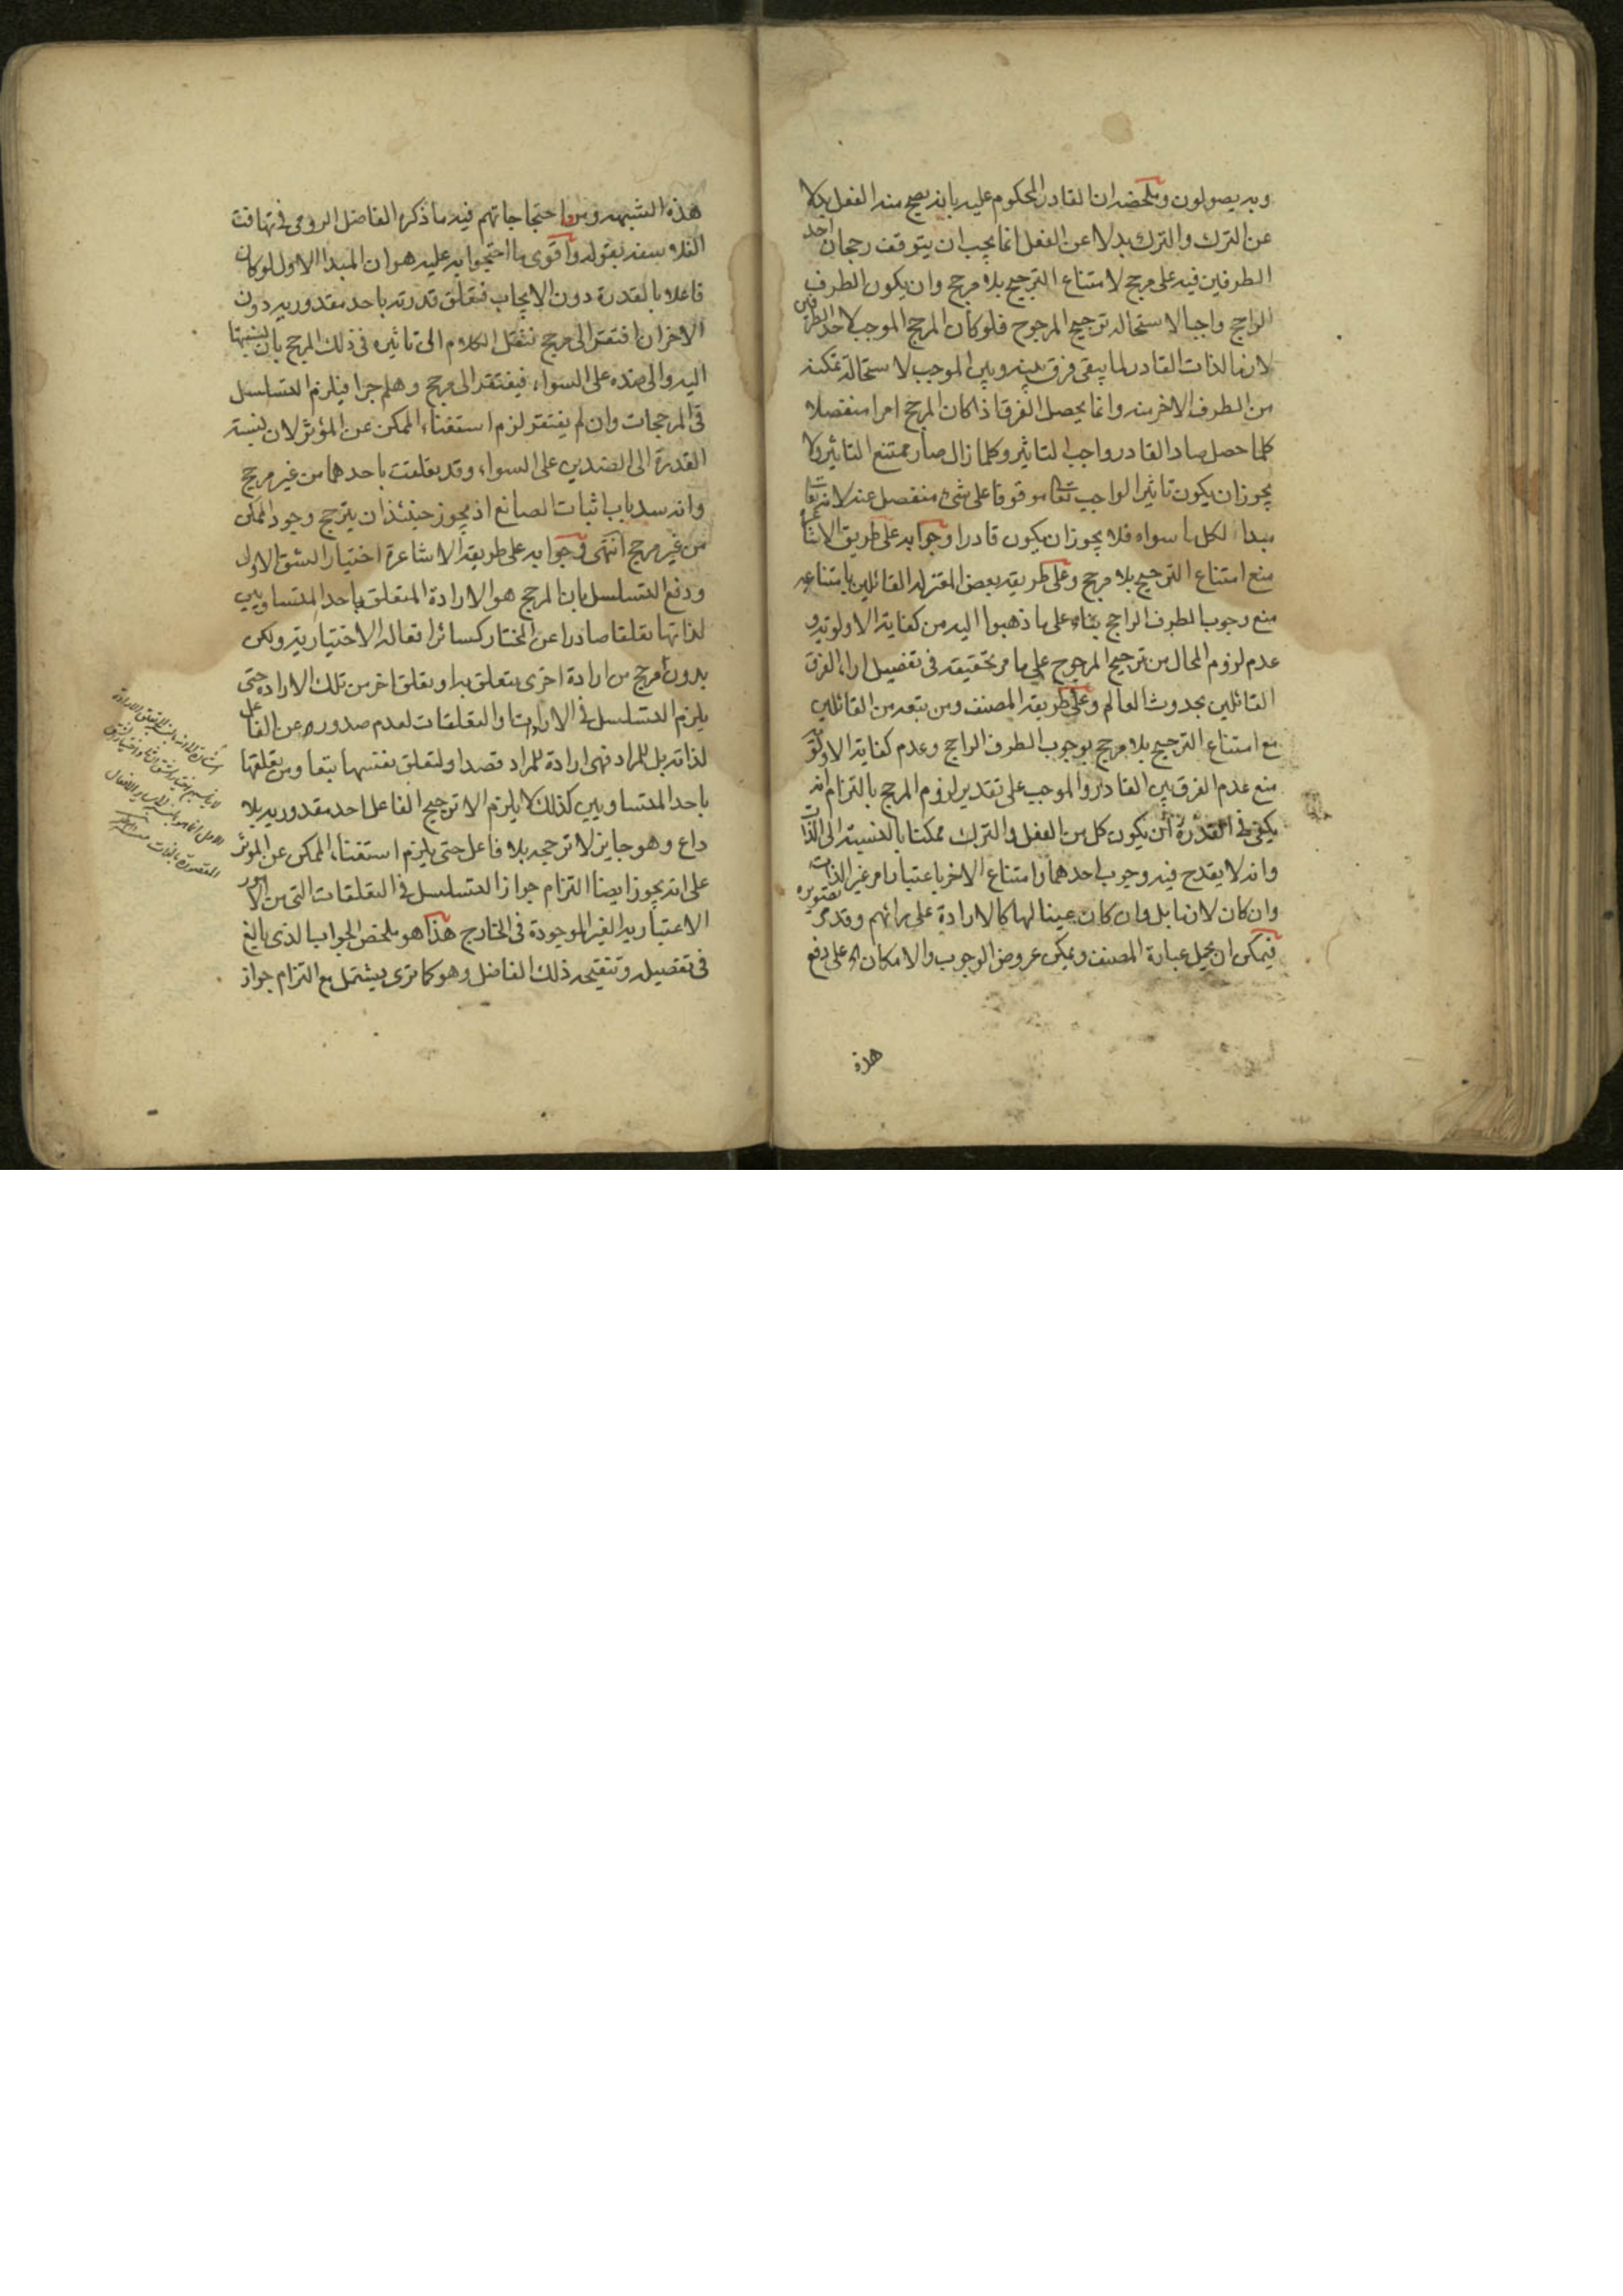 وبه يصولون وملخصه ان القادر المحكوم عليه بانه يصح منه الفعل بدلا
عن الترك والترك بدلا عن الفعل انما يجب ان يتوقف رجحان احد
الطرفين فيه على مرجح لامتناع الترجيح بلا مرجح وان يكون الطرف
الراجح واجبا لاستحالة ترجيح المرجوح فلو كان المرجح الموجب لاحد الطرفين
لازما لذات القادر لما يبقى فرق بينه وبين الموجب لاستحالة تمكنه
من الطرف الاخر منه وانما يحصل الفرق اذا كان المرجح امرا منفصلا
كلما حصل صار القادر واجب التاثير وكلما زال صار ممتنع التاثير ولا
يجوز ان يكون تاثير الواجب تعا موقوفا على شئ منفصل عنه لانه تعا
مبداء لكل ما سواه فلا يجوز ان يكون قادرا وجوابه على طريق الاشاعرة
منع امتناع الترجيح بلا مرجح وعلى طريقه بعض المعتزله القائلين بامتناعه
منع وجوب الطرف الراجح بناء على ما ذهبوا اليه من كفاية الاولويه و
عدم لزوم المحال من ترجيح المرجوح على ما مر تحقيقه فى تفصيل اراء الفرق
القائلين بحدوث العالم وعلى طريقه المصنف ومن تبعه من القائلين
مع امتناع الترجيح بلا مرجح بوجوب الطرف الراجح وعدم كفاية الاولوية
منع عدم الفرق بين القادر والموجب على تقدير لزوم المرجح بالتزام انه
يكفى فى القدرة ان يكون كل من الفعل والترك ممكنا بالنسبة الى الذات
وانه لا يقدح فيه وجوب احدهما وامتناع الاخر باعتبار امر غير الذات
وان كان لازما بل وان كان عينا لها كالارادة على رائهم وقد مر تقريره
فيمكن ان يحمل عبارة المصنف ويمكن عروض الوجوب والامكان اه على دفع
هذه
هذه الشبهه ومن احتجاجاتهم فيه ما ذكره الفاضل الرومى فى تهافت
الفلاسفه بقوله واقوى ما احتجوا به عليه هو ان المبدا الاول لو كان
فاعلا بالقدرة دون الايجاب فتعلق قدرته باحد مقدوريه دون
الاخر ان افتقر الى مرجح ننقل الكلام الى تاثيره فى ذلك المرجح بان نسبتها
اليه والى ضده على السواء فيفتقر الى مرجح وهلم جرا فيلزم التسلسل
فى المرجحات وان لم يفتقر لزم استغناء الممكن عن المؤثر لان نسبة
القدرة الى الضدين على السواء وقد تعلقت باحدهما من غير مرجح
وانه سد باب اثبات الصانع اذ يجوز حينئذ ان يترجح وجود الممكن
من غير مرجح انتهى وجوابه على طريقه الاشاعرة اختيار الشق الاول
ودفع التسلسل بان المرجح هو الارادة المتعلق باحد المتساويين
لذاتها تعلقا صادرا عن المختار كسائر افعاله الاختياريه ولكن
بدون مرجح من ارادة اخرى يتعلق بها وتعلق اخر من تلك الارادة حتى
يلزم التسلسل فى الارادات والتعلقات لعدم صدوره عن الفاعل
لذاته بل للمراد فهى ارادة للمراد قصدا ولتعلق نفسها تبعا ومن تعلقها
باحد المتساويين كذلك لا يلزم الا ترجيح الفاعل احد مقدوريه بلا
داع وهو جايز لا ترجحه بلا فاعل حتى يلزم استغناء الممكن عن الموثر
على انه يجوز ايضا التزام جواز التسلسل فى التعلقات التى من الامور
الاعتباريه الغير الموجودة فى الخارج هذا هو ملخص الجواب الذى بالغ
فى تفصيله وتنقيحه ذلك الفاضل وهو كما ترى يشتمل مع التزام جواز